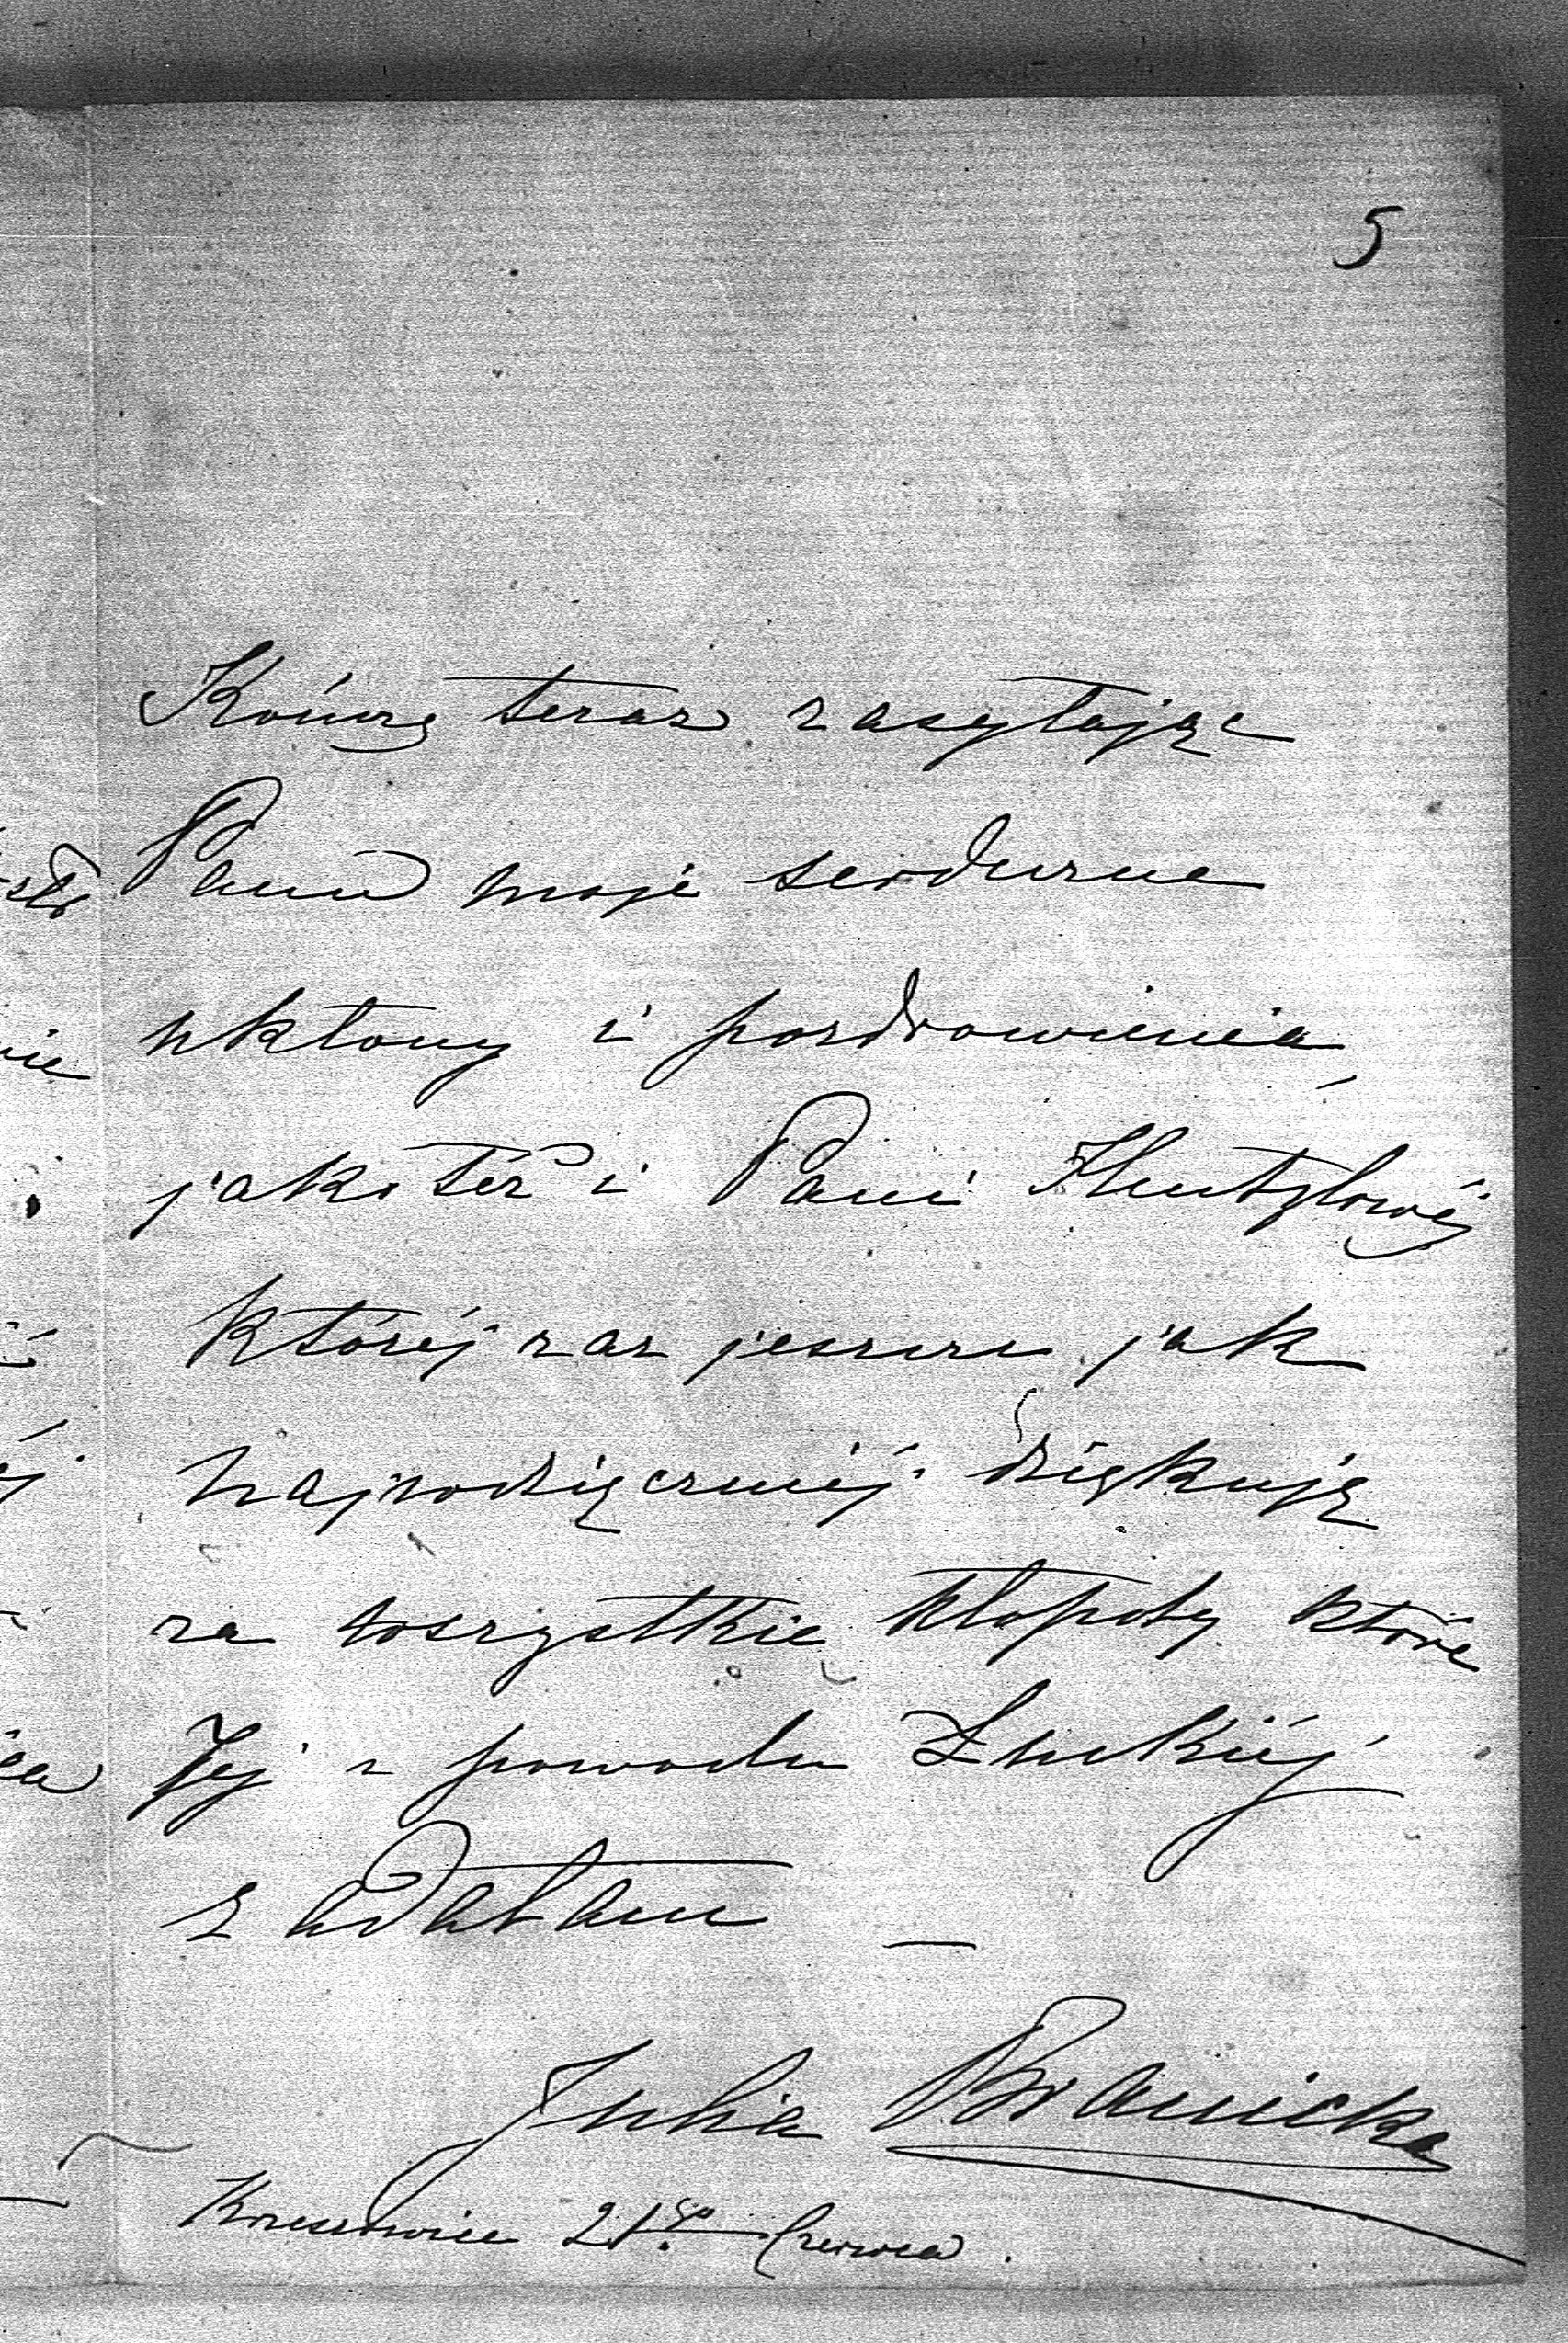 5
Kończę teraz zasyłając
Panu moje serdeczne
ukłony i pozdrowienia
jakoteż i Pani
której raz jeszcze jak
najwdzięczniéj dziękuję
za wszystkie kłopoty które
Jéj z powodu Łuckiéj
zadałam —
Julia Branicka
Krzeszowice 21go Czerwca.